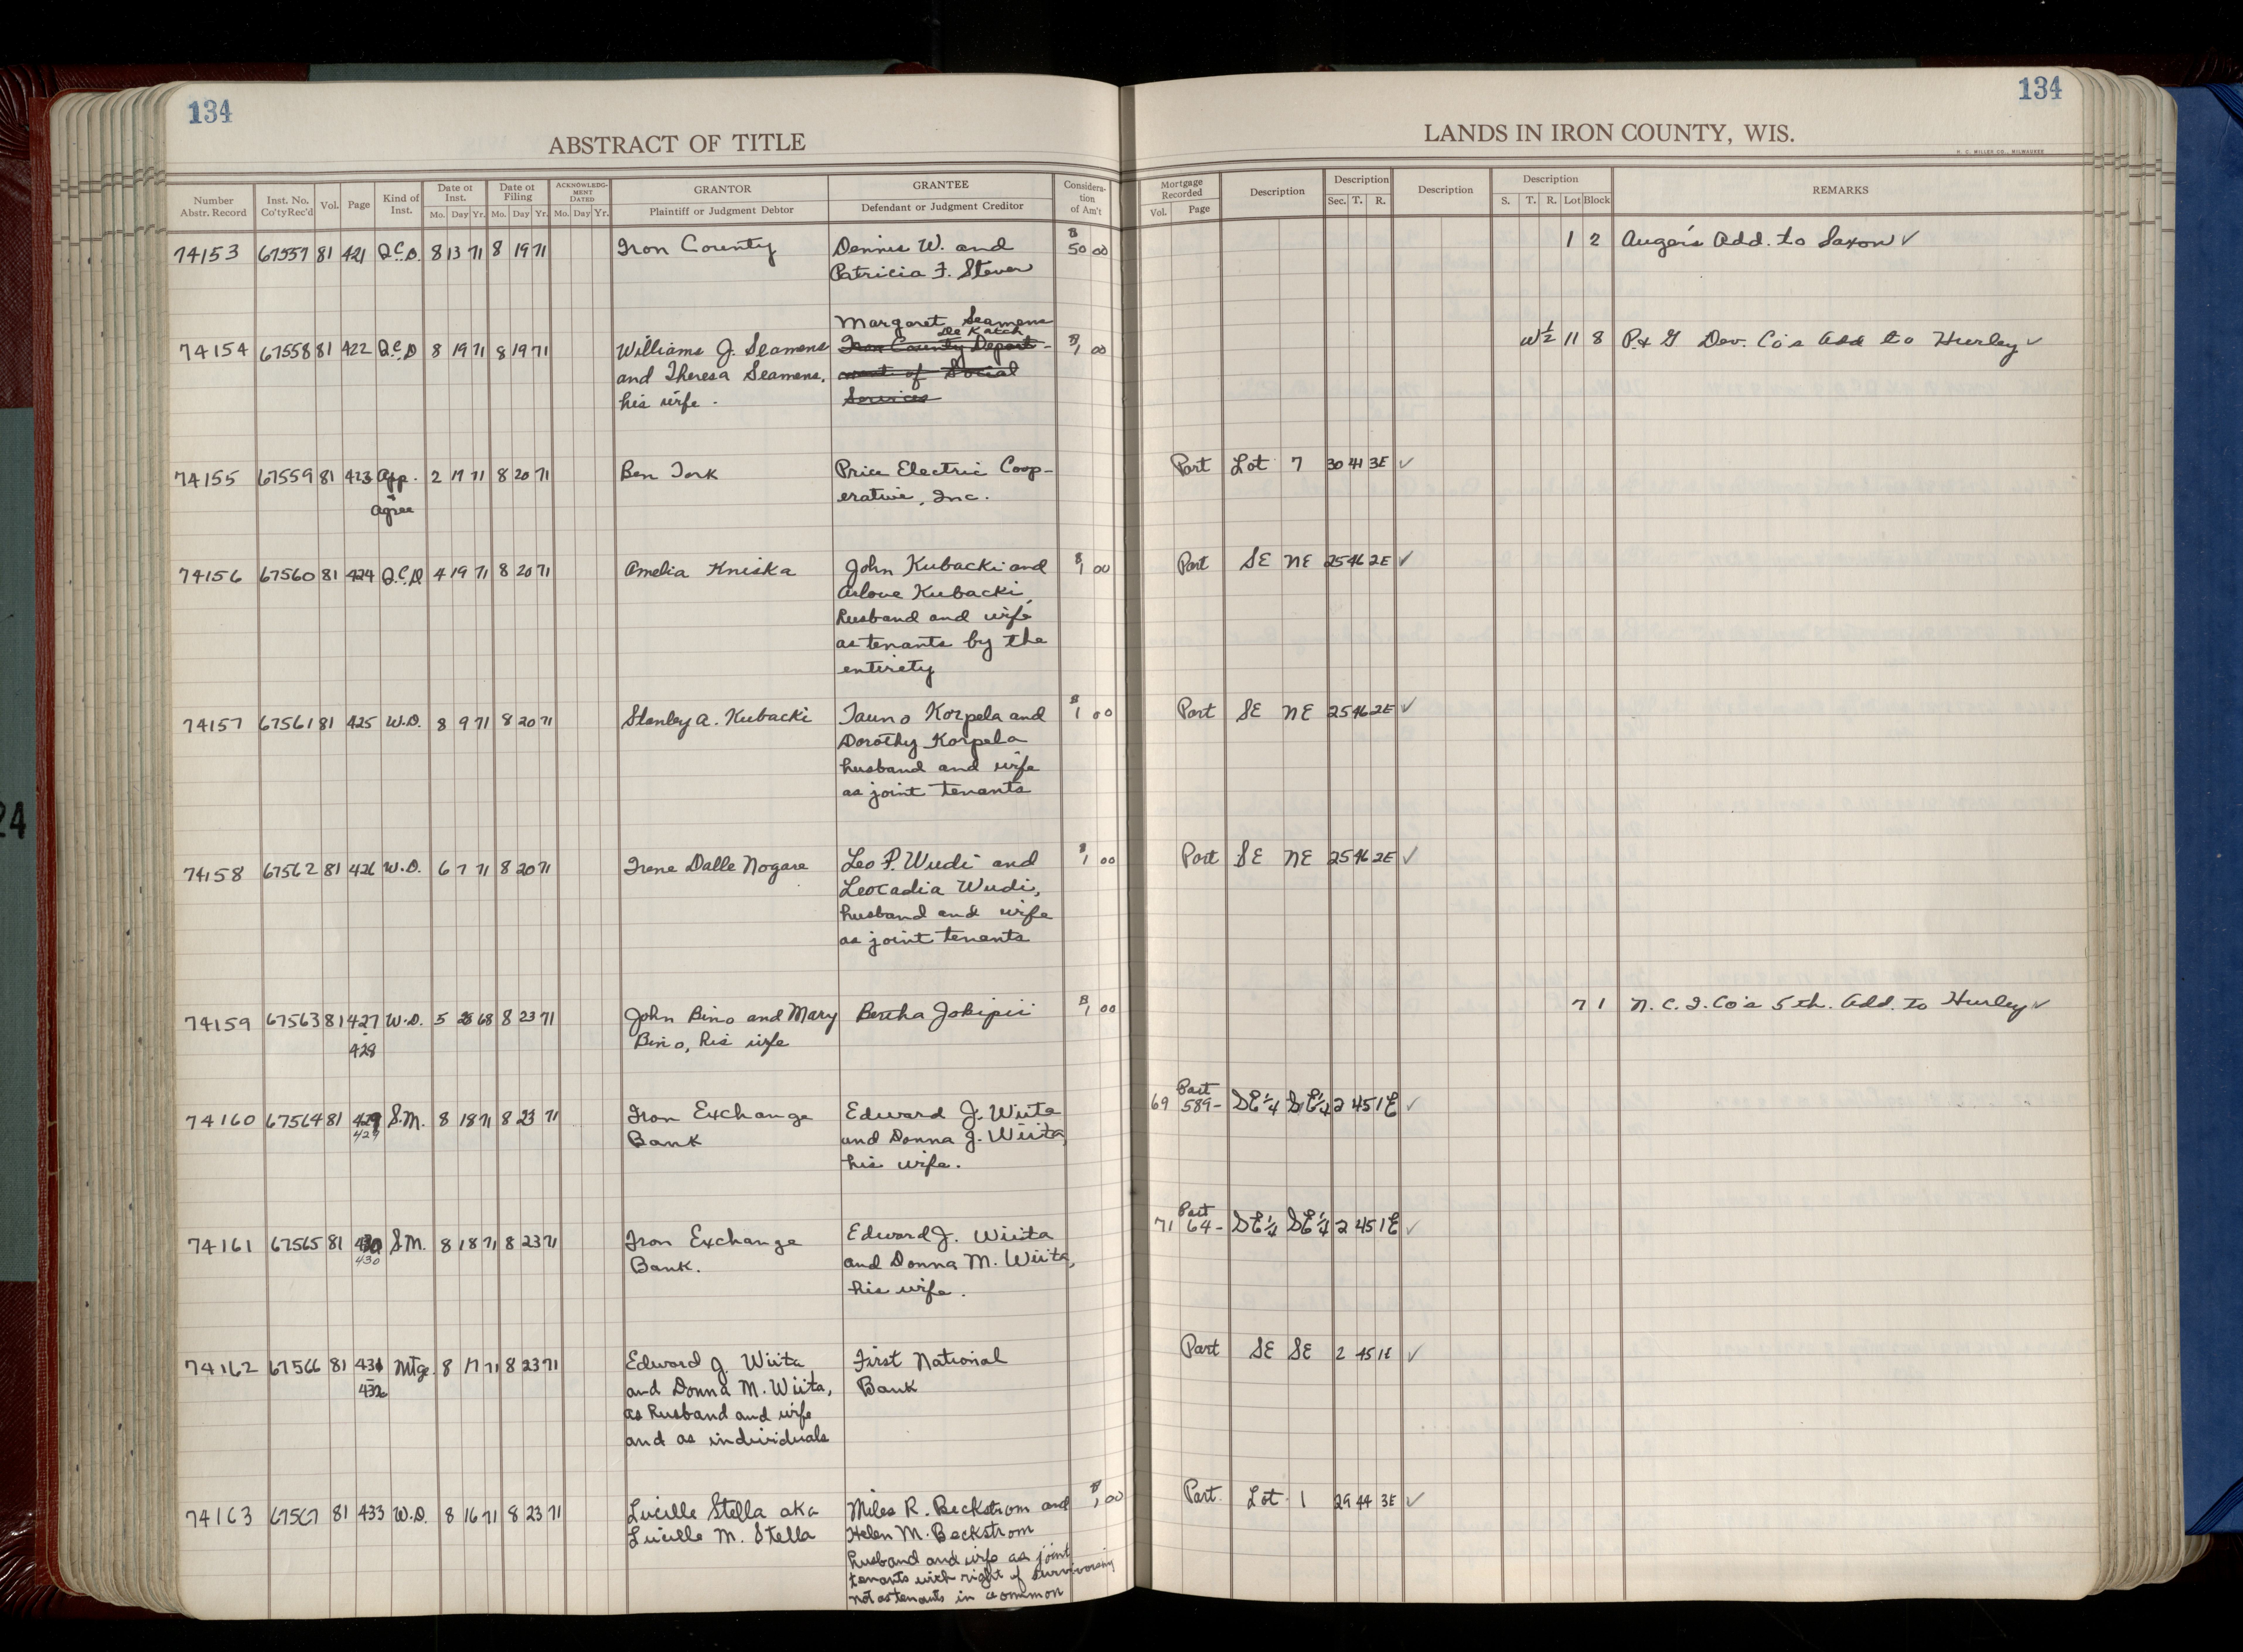 134
134
ABSTRACT OF TITLE
LANDS IN IRON COUNTY, WIS.
H. C. MILLER CO., MILWAUKEE
Number Abstr. Record Inst. No. Co'ty Rec'd Vol. Page Kind of Inst. Date of Inst. Mo. Day Yr. Date of Filing Mo. Day Yr. ACKNOWLEDGMENT DATED Mo. Day Yr. GRANTOR Plaintiff or Judgment Debtor GRANTEE Defendant or Judgment Creditor Consideration of Am't Mortgage Recorded Vol. Page Description Description Sec. T. R. Description Description S. T. R. Lot Block REMARKS
74153 67557 81 421 Q.C.D. 8 13 71 8 19 71 Iron County Dennis W. and $50 00 1 2 Auger's Add. to Saxon ✓
Patricia F. Stever
Margaret Seamens
De Katch
74154 67558 81 422 Q.C.D 8 19 71 8 19 71 Williams J. Seamens Iron County Depart- $1 00 W½ 11 8 P. & G Dev. Co's Add to Hurley ✓
and Theresa Seamens, ment of Social
his wife. Services
74155 67559 81 423 App. 2 17 71 8 20 71 Ben Tork Price Electric Coop- Part Lot 7 30 41 3E ✓
Agree erative, Inc.
74156 67560 81 424 Q.C.D 4 19 71 8 20 71 Amelia Kniska John Kubacki and $1 00 Part SE NE 25 46 2E ✓
Arlove Kubacki,
husband and wife
as tenants by the
entirety
74157 67561 81 425 W.D. 8 9 71 8 20 71 Stanley A. Kubacki Tauno Korpela and $1 00 Part SE NE 25 46 2E ✓
Dorothy Korpela
husband and wife
as joint tenants
74158 67562 81 426 W.D. 6 7 71 8 20 71 Irene Dalle Nogare Leo P. Wudi and $1 00 Part SE NE 25 46 2E ✓
Leocadia Wudi,
husband and wife
as joint tenants
74159 67563 81 427 W.D. 5 28 68 8 23 71 John Bino and Mary Bertha Jokipii $1 00 7 1 N. C. I. Co's 5th. Add. to Hurley ✓
- 428 Bino, his wife
Part
74160 67564 81 429 S.M. 8 18 71 8 23 71 Iron Exchange Edward J. Wiita 69 589- SE¼ SE¼ 2 45 1E ✓
429 Bank and Donna J. Wiita,
his wife.
Part
74161 67565 81 430 S.M. 8 18 71 8 23 71 Iron Exchange Edward J. Wiita 71 64- SE¼ SE¼ 2 45 1E ✓
430 Bank. and Donna M. Wiita,
his wife.
74162 67566 81 431 Mtge. 8 17 71 8 23 71 Edward J. Wiita First National Part SE SE 2 45 1E ✓
- 432 and Donna M. Wiita, Bank
as husband and wife
and as individuals
74163 67567 81 433 W.D. 8 16 71 8 23 71 Lucille Stella aka Miles R. Beckstrom and $1 00 Part Lot 1 29 44 3E ✓
Lucille M. Stella Helen M. Beckstrom
husband and wife as joint
tenants with right of survivorship
not as tenants in common
24